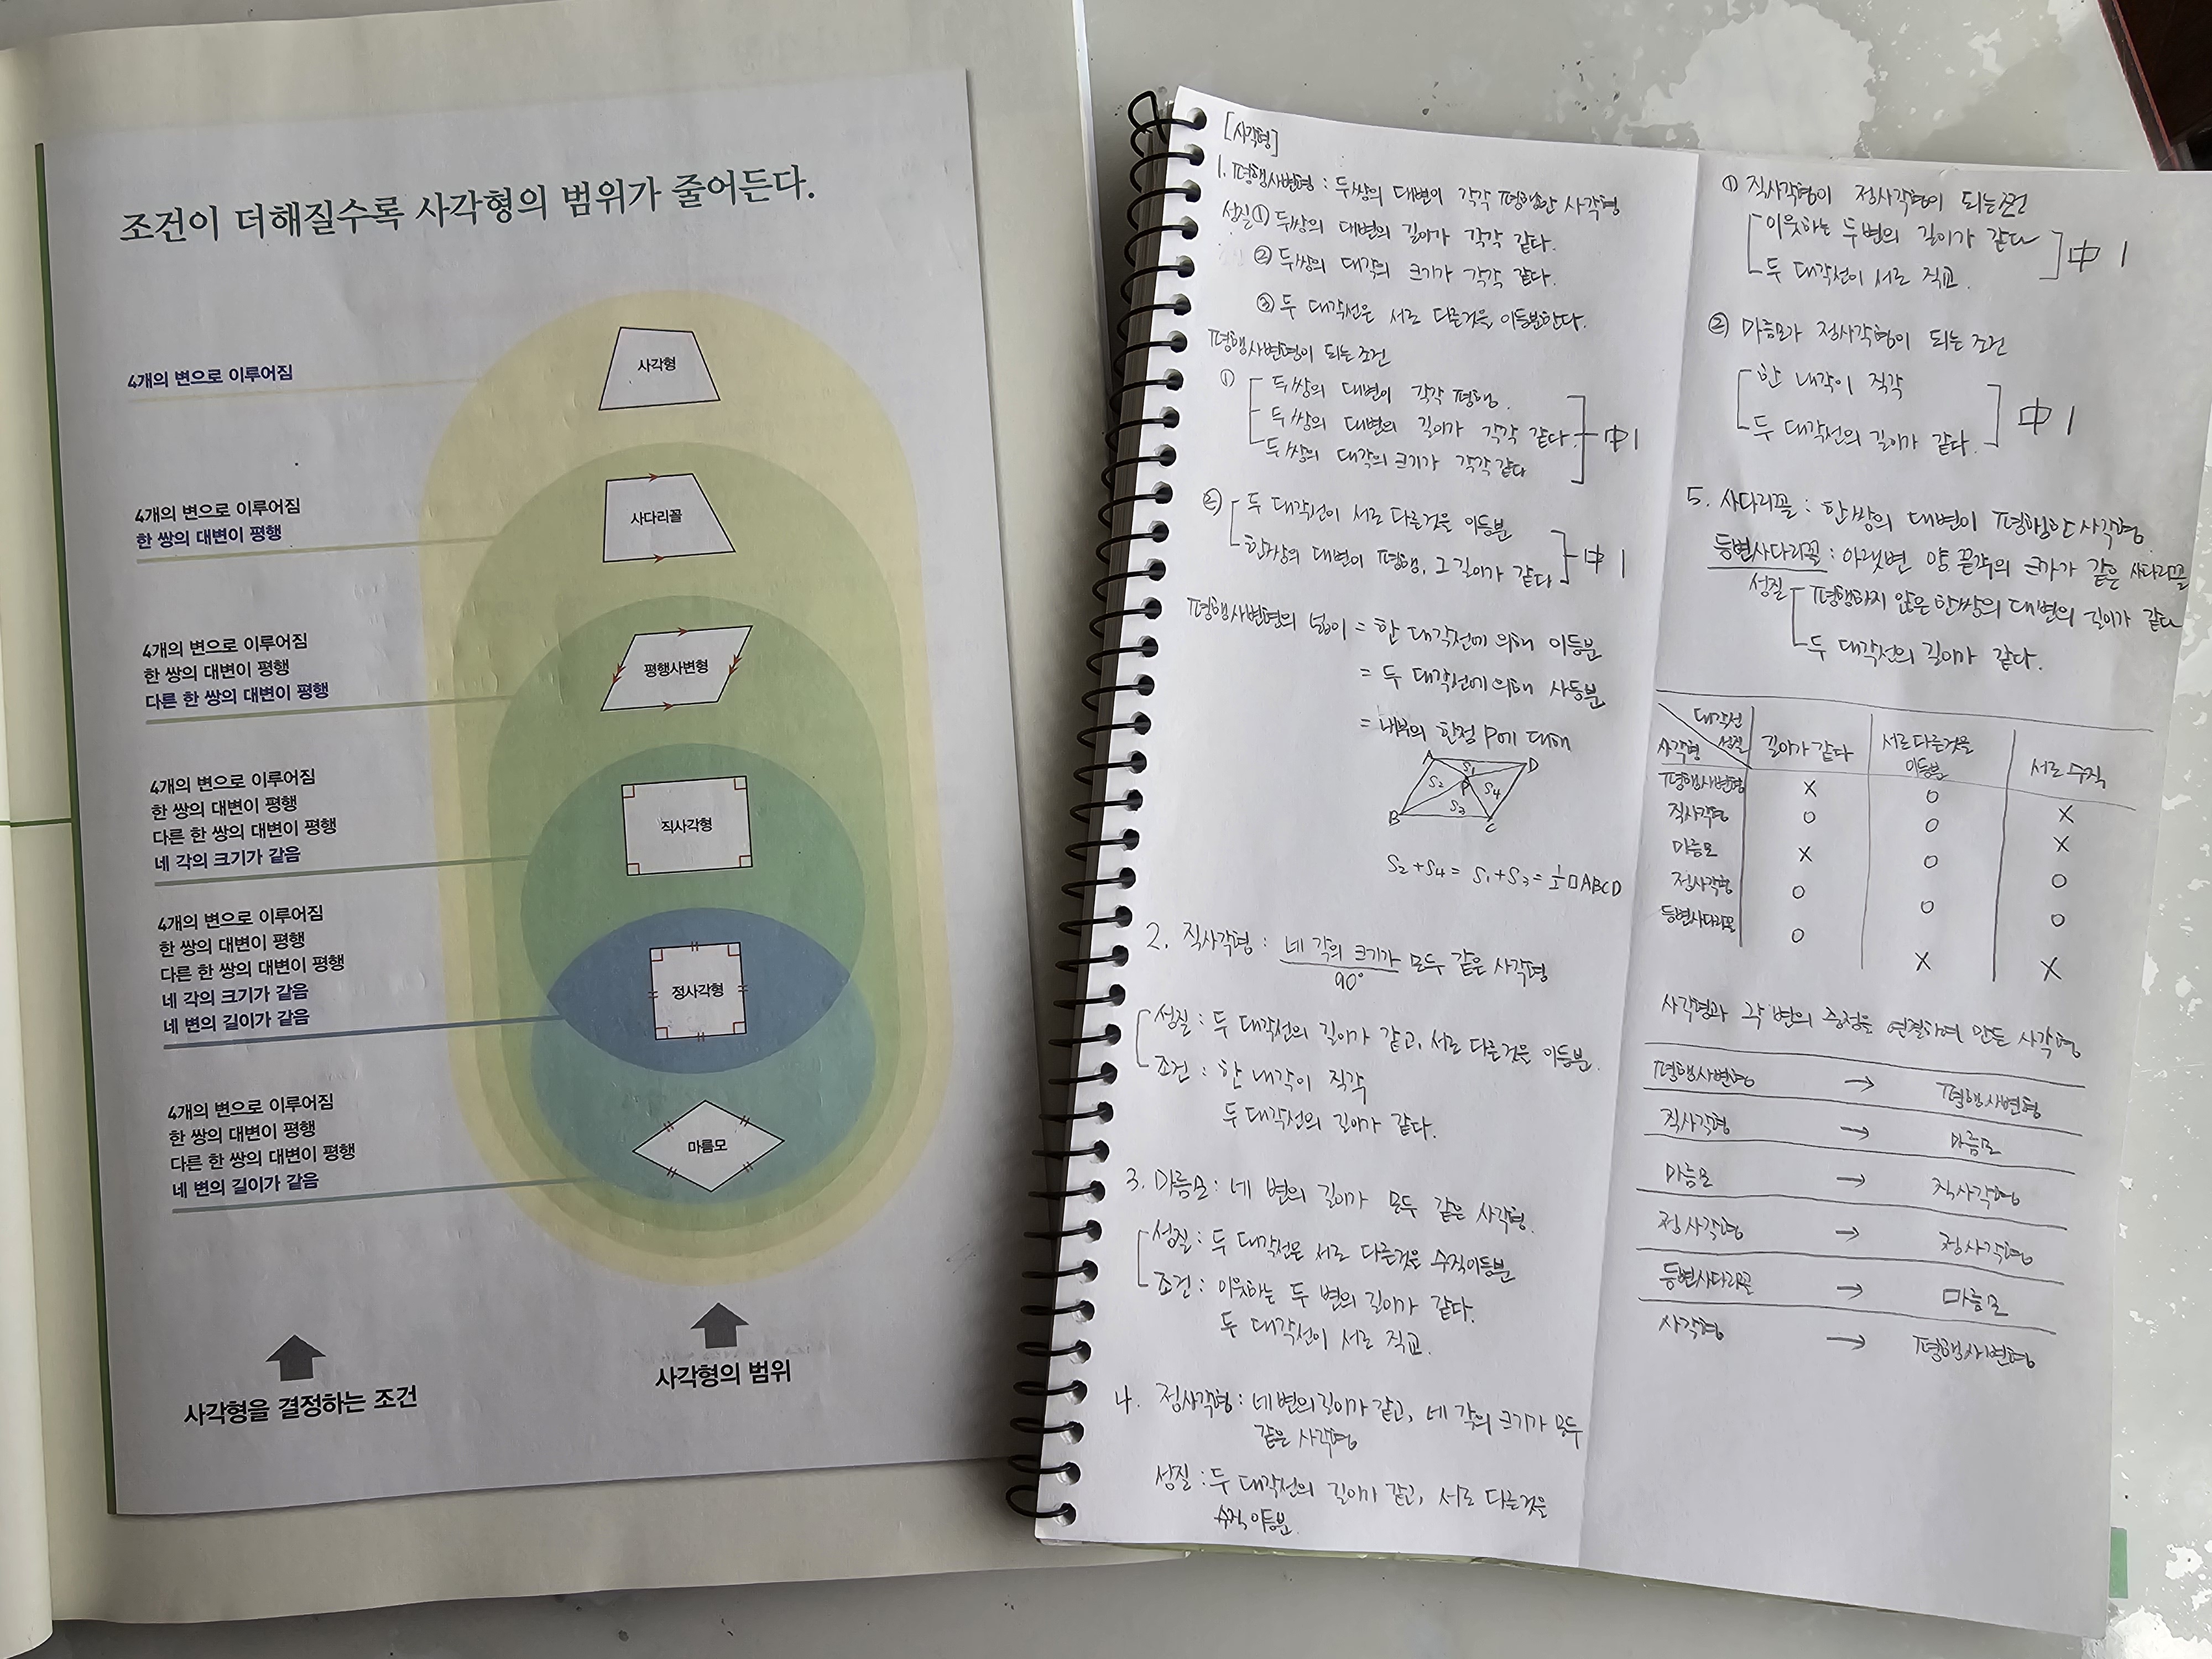 조건이 더해질수록 사각형의 범위가 줄어든다.
4개의 변으로 이루어짐
사각형
4개의 변으로 이루어짐
한 쌍의 대변이 평행
사다리꼴
4개의 변으로 이루어짐
한 쌍의 대변이 평행
다른 한 쌍의 대변이 평행
평행사변형
4개의 변으로 이루어짐
한 쌍의 대변이 평행
다른 한 쌍의 대변이 평행
네 각의 크기가 같음
직사각형
4개의 변으로 이루어짐
한 쌍의 대변이 평행
다른 한 쌍의 대변이 평행
네 각의 크기가 같음
네 변의 길이가 같음
정사각형
4개의 변으로 이루어짐
한 쌍의 대변이 평행
다른 한 쌍의 대변이 평행
네 변의 길이가 같음
마름모
사각형을 결정하는 조건
사각형의 범위
[사각형]
1. 평행사변형 : 두쌍의 대변이 각각 평행한 사각형
성질 ① 두쌍의 대변의 길이가 각각 같다.
② 두쌍의 대각의 크기가 각각 같다.
③ 두 대각선은 서로 다른것을 이등분한다.
평행사변형이 되는 조건
① 두쌍의 대변이 각각 평행.
두쌍의 대변의 길이가 각각 같다.
두쌍의 대각의 크기가 각각 같다
中 1
② 두 대각선이 서로 다른것을 이등분
한쌍의 대변이 평행, 그 길이가 같다
中 1
평행사변형의 넓이 = 한 대각선에 의해 이등분
= 두 대각선에 의해 사등분
= 내부의 한점 P에 대해
A D
S1 S2 P S4 S3
B C
S2+S4 = S1+S3 = ½□ABCD
2. 직사각형 : 네 각의 크기가 모두 같은 사각형
90°
성질 : 두 대각선의 길이가 같고, 서로 다른것을 이등분.
조건 : 한 내각이 직각
두 대각선의 길이가 같다.
3. 마름모 : 네 변의 길이가 모두 같은 사각형.
성질 : 두 대각선은 서로 다른것을 수직이등분
조건 : 이웃하는 두 변의 길이가 같다.
두 대각선이 서로 직교.
4. 정사각형 : 네 변의 길이가 같고, 네 각의 크기가 모두
같은 사각형
성질 : 두 대각선의 길이가 같고, 서로 다른것을
수직이등분.
① 직사각형이 정사각형이 되는 조건
이웃하는 두 변의 길이가 같다
두 대각선이 서로 직교.
中 1
② 마름모가 정사각형이 되는 조건
한 내각이 직각
두 대각선의 길이가 같다.
中 1
5. 사다리꼴 : 한쌍의 대변이 평행한 사각형
등변사다리꼴 : 아랫변 양 끝각의 크기가 같은 사다리꼴
성질 평행하지 않은 한쌍의 대변의 길이가 같다
두 대각선의 길이가 같다.
대각선 성질 사각형 길이가 같다 서로 다른것을 이등분 서로 수직
평행사변형 X O X
직사각형 O O X
마름모 X O O
정사각형 O O O
등변사다리꼴 O X X
사각형과 각 변의 중점을 연결하여 만든 사각형
평행사변형 → 평행사변형
직사각형 → 마름모
마름모 → 직사각형
정사각형 → 정사각형
등변사다리꼴 → 마름모
사각형 → 평행사변형